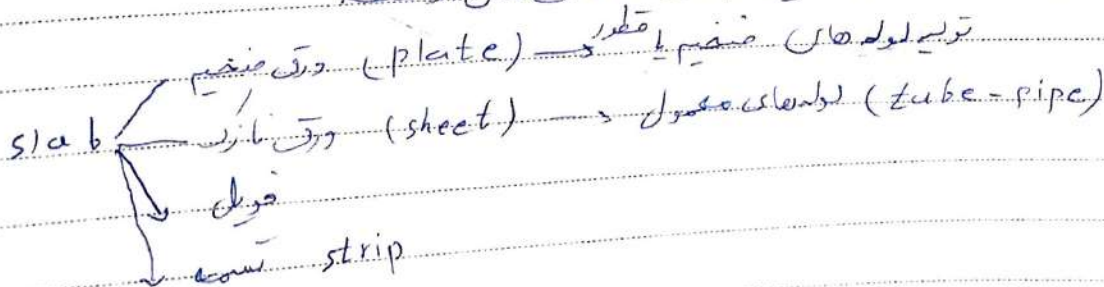 slab ورق ضخیم (plate) → تولید لوله های ضخیم یا قطور
ورق نازک (sheet) → لوله های معمول (tube - pipe)
فویل
تسمه strip